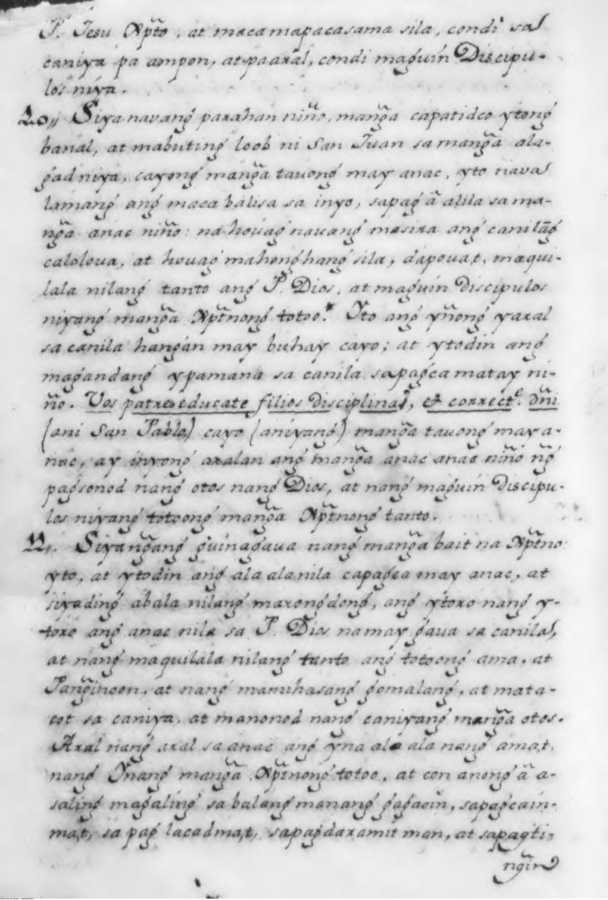 P. Jesu Xpto, at macamapacasama sila, condi sa
caniya pa ampon, at paaral, condi maguin Discipu-
los niya.
20,, Siya navang parahan niño, manga capatidco ytong
banal, at mabuting loob ni San Juan sa manga ala-
gad niya, cayong manga tauong may anac, yto nava
lamang ang maca balisa sa inyo, sapag alila sa ma-
nga anac niño: na houag navang masira ang canilang
caloloua, at houag mahonghang sila, dapoua,t, maqui-
lala nilang tanto ang P. Dios, at maguin discipulos
niyang manga Xptnong totoo. Yto ang ynyong yaral
sa canila hangan may buhay cayo; at ytodin ang
magandang ypamana sa canila sapagca matay ni-
ño. Vos patres educate filios disciplina, et correct.e dñi
(ani San Pablo) cayo (aniyang) manga tauong may a-
nac, ay inyong aralan ang manga anac anac niño ng̃
pagsonod nang otos nang Dios, at nang maguin Discipu-
los niyang totoong manga Xptnong tanto.
22,. Siyang̃ang guinagaua nang manga bait na Xptno
yto, at ytodin ang ala ala nila capagca may anac, at
siyading abala nilang marongdong, ang ytoro nang y-
toro ang anac nila sa P. Dios namay gaua sa canila,
at nang maquilala nilang tanto ang totoong ama, at
Panginoon, at nang mamihasang gomalang, at mata-
cot sa caniya, at manonod nang caniyang manga otos.
Aral nang aral sa anac ang yna ala ala nang ama,t,
nang Ynang manga Xptnong totoo, at con anong a-
saling magaling sa balang manang gagacin, sapagcain-
ma,t, sa pag lacadma,t, sapagdaramit man, at sapagti-
ngin